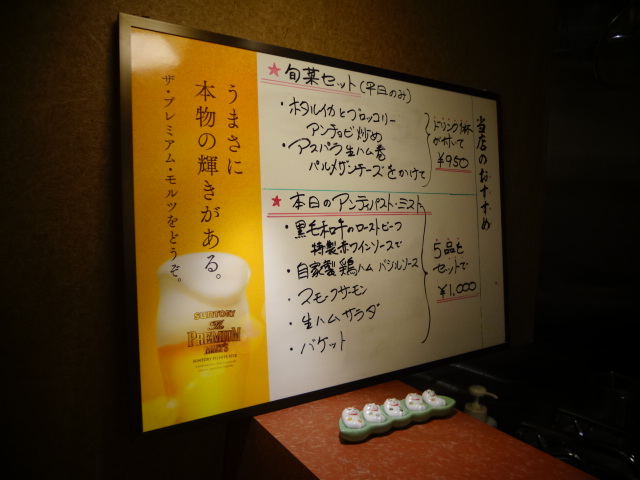 うまさに
本物の輝きがある。
ザ・プレミアム・モルツをどうぞ。
SUNTORY
THE
PREMIUM
MALT'S
当店のおすすめ
★旬菜セット(平日のみ)
・ホタルイカとブロッコリー
アンチョビ炒め
・アスパラ生ハム巻
パルメザンチーズをかけて
ドリンク1杯
が付いて
¥950
★本日のアンティパスト・ミスト
・黒毛和牛のローストビーフ
特製赤ワインソースで
・自家製鶏ハム バジルソース
・スモークサーモン
・生ハムサラダ
・バケット
5品を
セットで
¥1,000